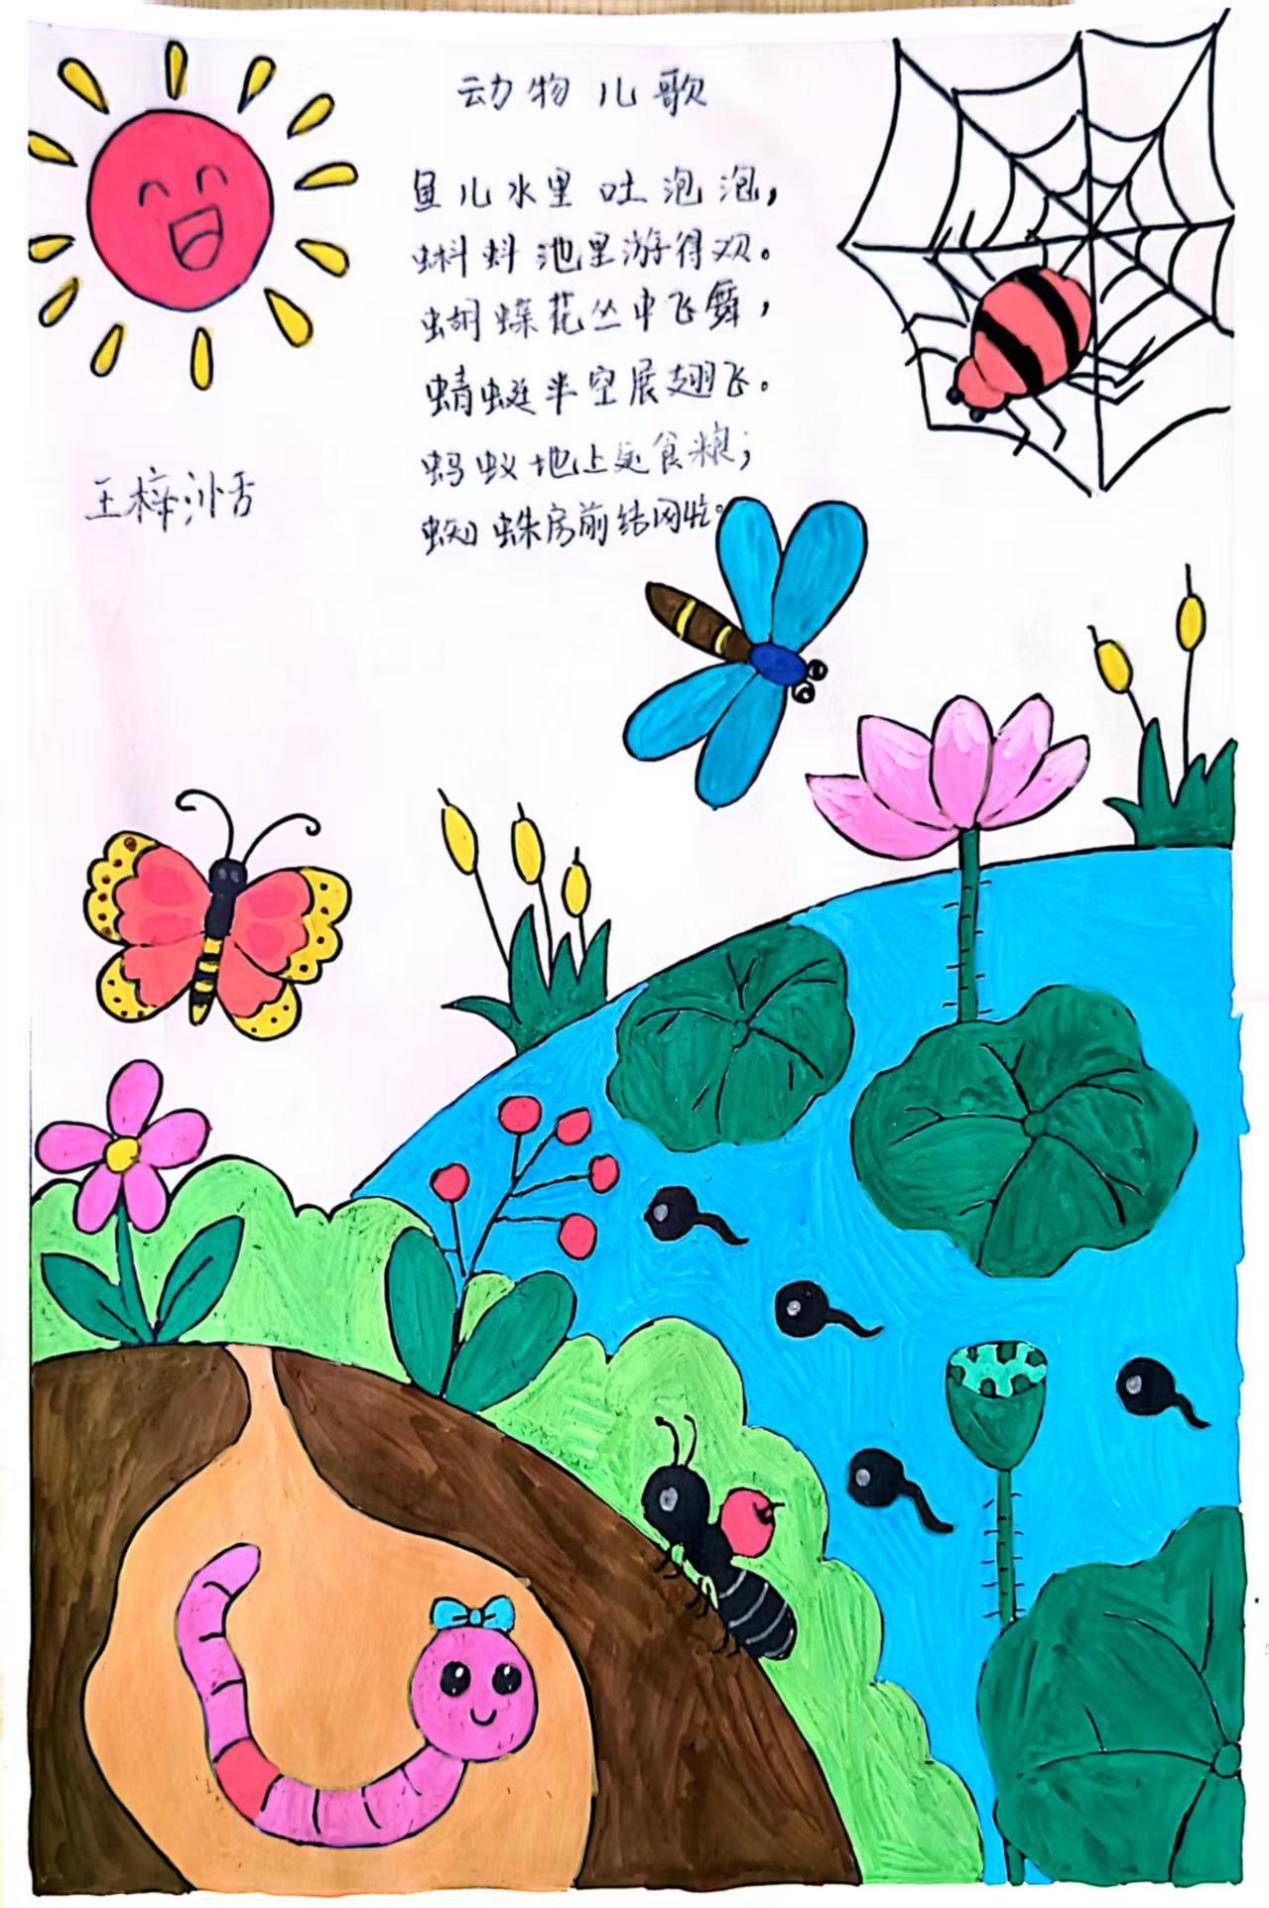 动物儿歌
鱼儿水里吐泡泡，
蝌蚪池里游得欢。
蝴蝶花丛中飞舞，
蜻蜓半空展翅飞。
蚂蚁地上运食粮；
蜘蛛房前结网忙。
王梓